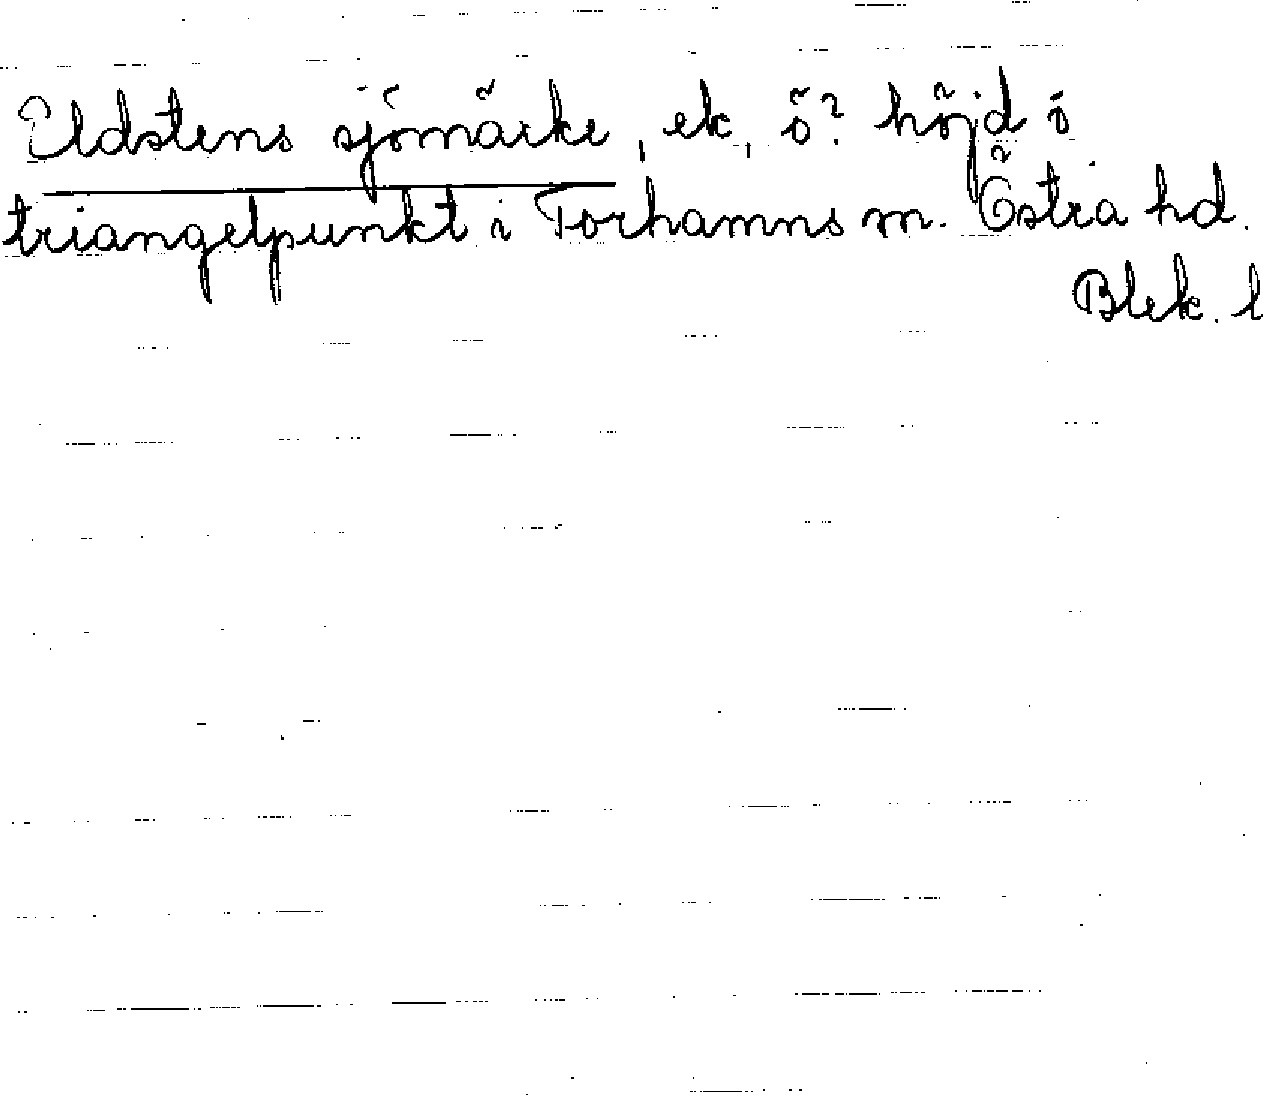 Eldstens sjömärke, ek, ö? höjd ö
triangelpunkt i Torhamns m. Östra hd.
Blek. l